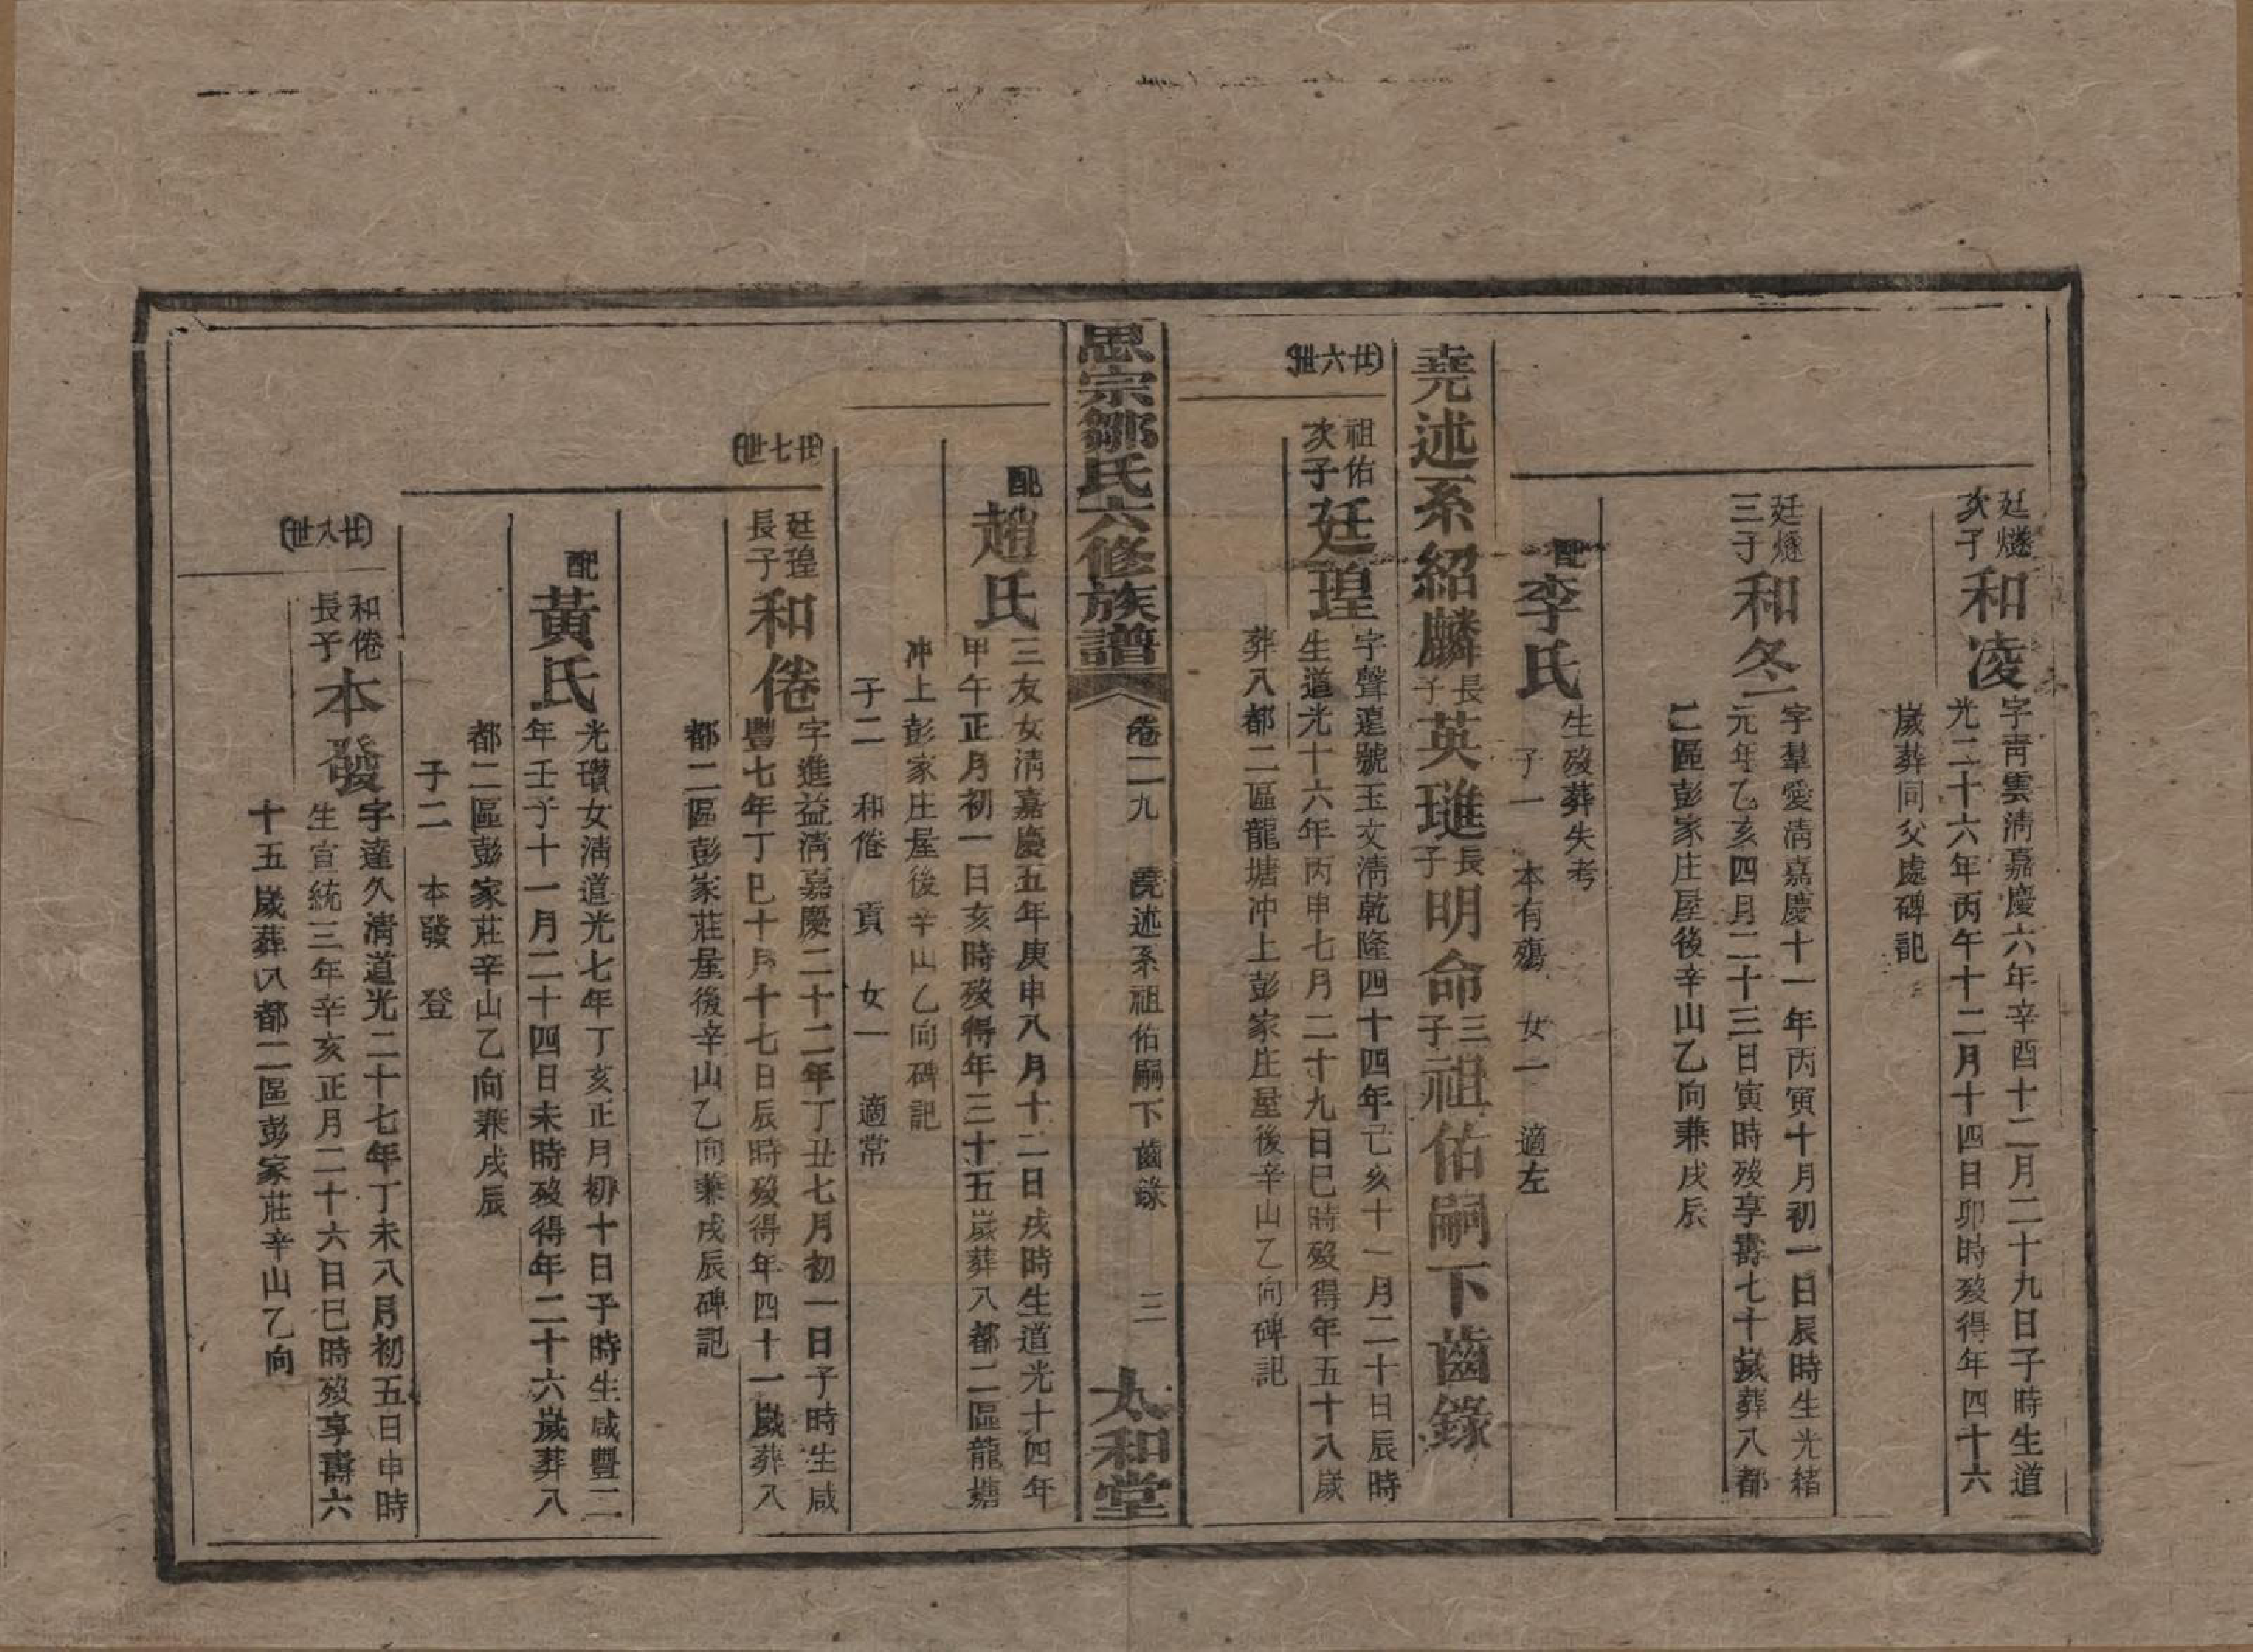 廷燧
次子
和凌
字青雲淸嘉慶六年辛酉十二月二十九日子時生道
光二十六年丙午十二月十四日卯時歿得年四十六
歲葬同父處碑記
廷燧
三子
和冬
字羣愛淸嘉慶十一年丙寅十月初一日辰時生光緒
元年乙亥四月二十三日寅時歿享壽七十歲葬八都
二區彭家庄屋後辛山乙向兼戌辰
配
李氏
生歿葬失考
子一 本有殤 女一 適左
堯述系紹麟長子英璡長子明命三子祖佑嗣下齒錄
廿六世
祖佑
次子
廷瑝
字聲遠號玉文淸乾隆四十四年己亥十一月二十日辰時
生道光十六年丙申七月二十九日巳時歿得年五十八歲
葬八都二區龍塘冲上彭家庄屋後辛山乙向碑記
思宗鄒氏六修族譜
卷二九 堯述系祖佑嗣下齒錄 三
太和堂
配
趙氏
三友女淸嘉慶五年庚申八月十二日戌時生道光十四年
甲午正月初一日亥時歿得年三十五歲葬八都二區龍塘
冲上彭家庄屋後辛山乙向碑記
子二 和倦 貢 女一 適常
廿七世
廷瑝
長子
和倦
字進益淸嘉慶二十二年丁丑七月初一日子時生咸
豐七年丁巳十月十七日辰時歿得年四十一歲葬八
都二區彭家莊屋後辛山乙向兼戌辰碑記
配
黃氏
光瓚女淸道光七年丁亥正月初十日子時生咸豐二
年壬子十一月二十四日未時歿得年二十六歲葬八
都二區彭家莊辛山乙向兼戌辰
子二 本發 登
廿八世
和倦
長子
本發
字達久淸道光二十七年丁未八月初五日申時
生宣統三年辛亥正月二十六日巳時歿享壽六
十五歲葬八都二區彭家莊辛山乙向